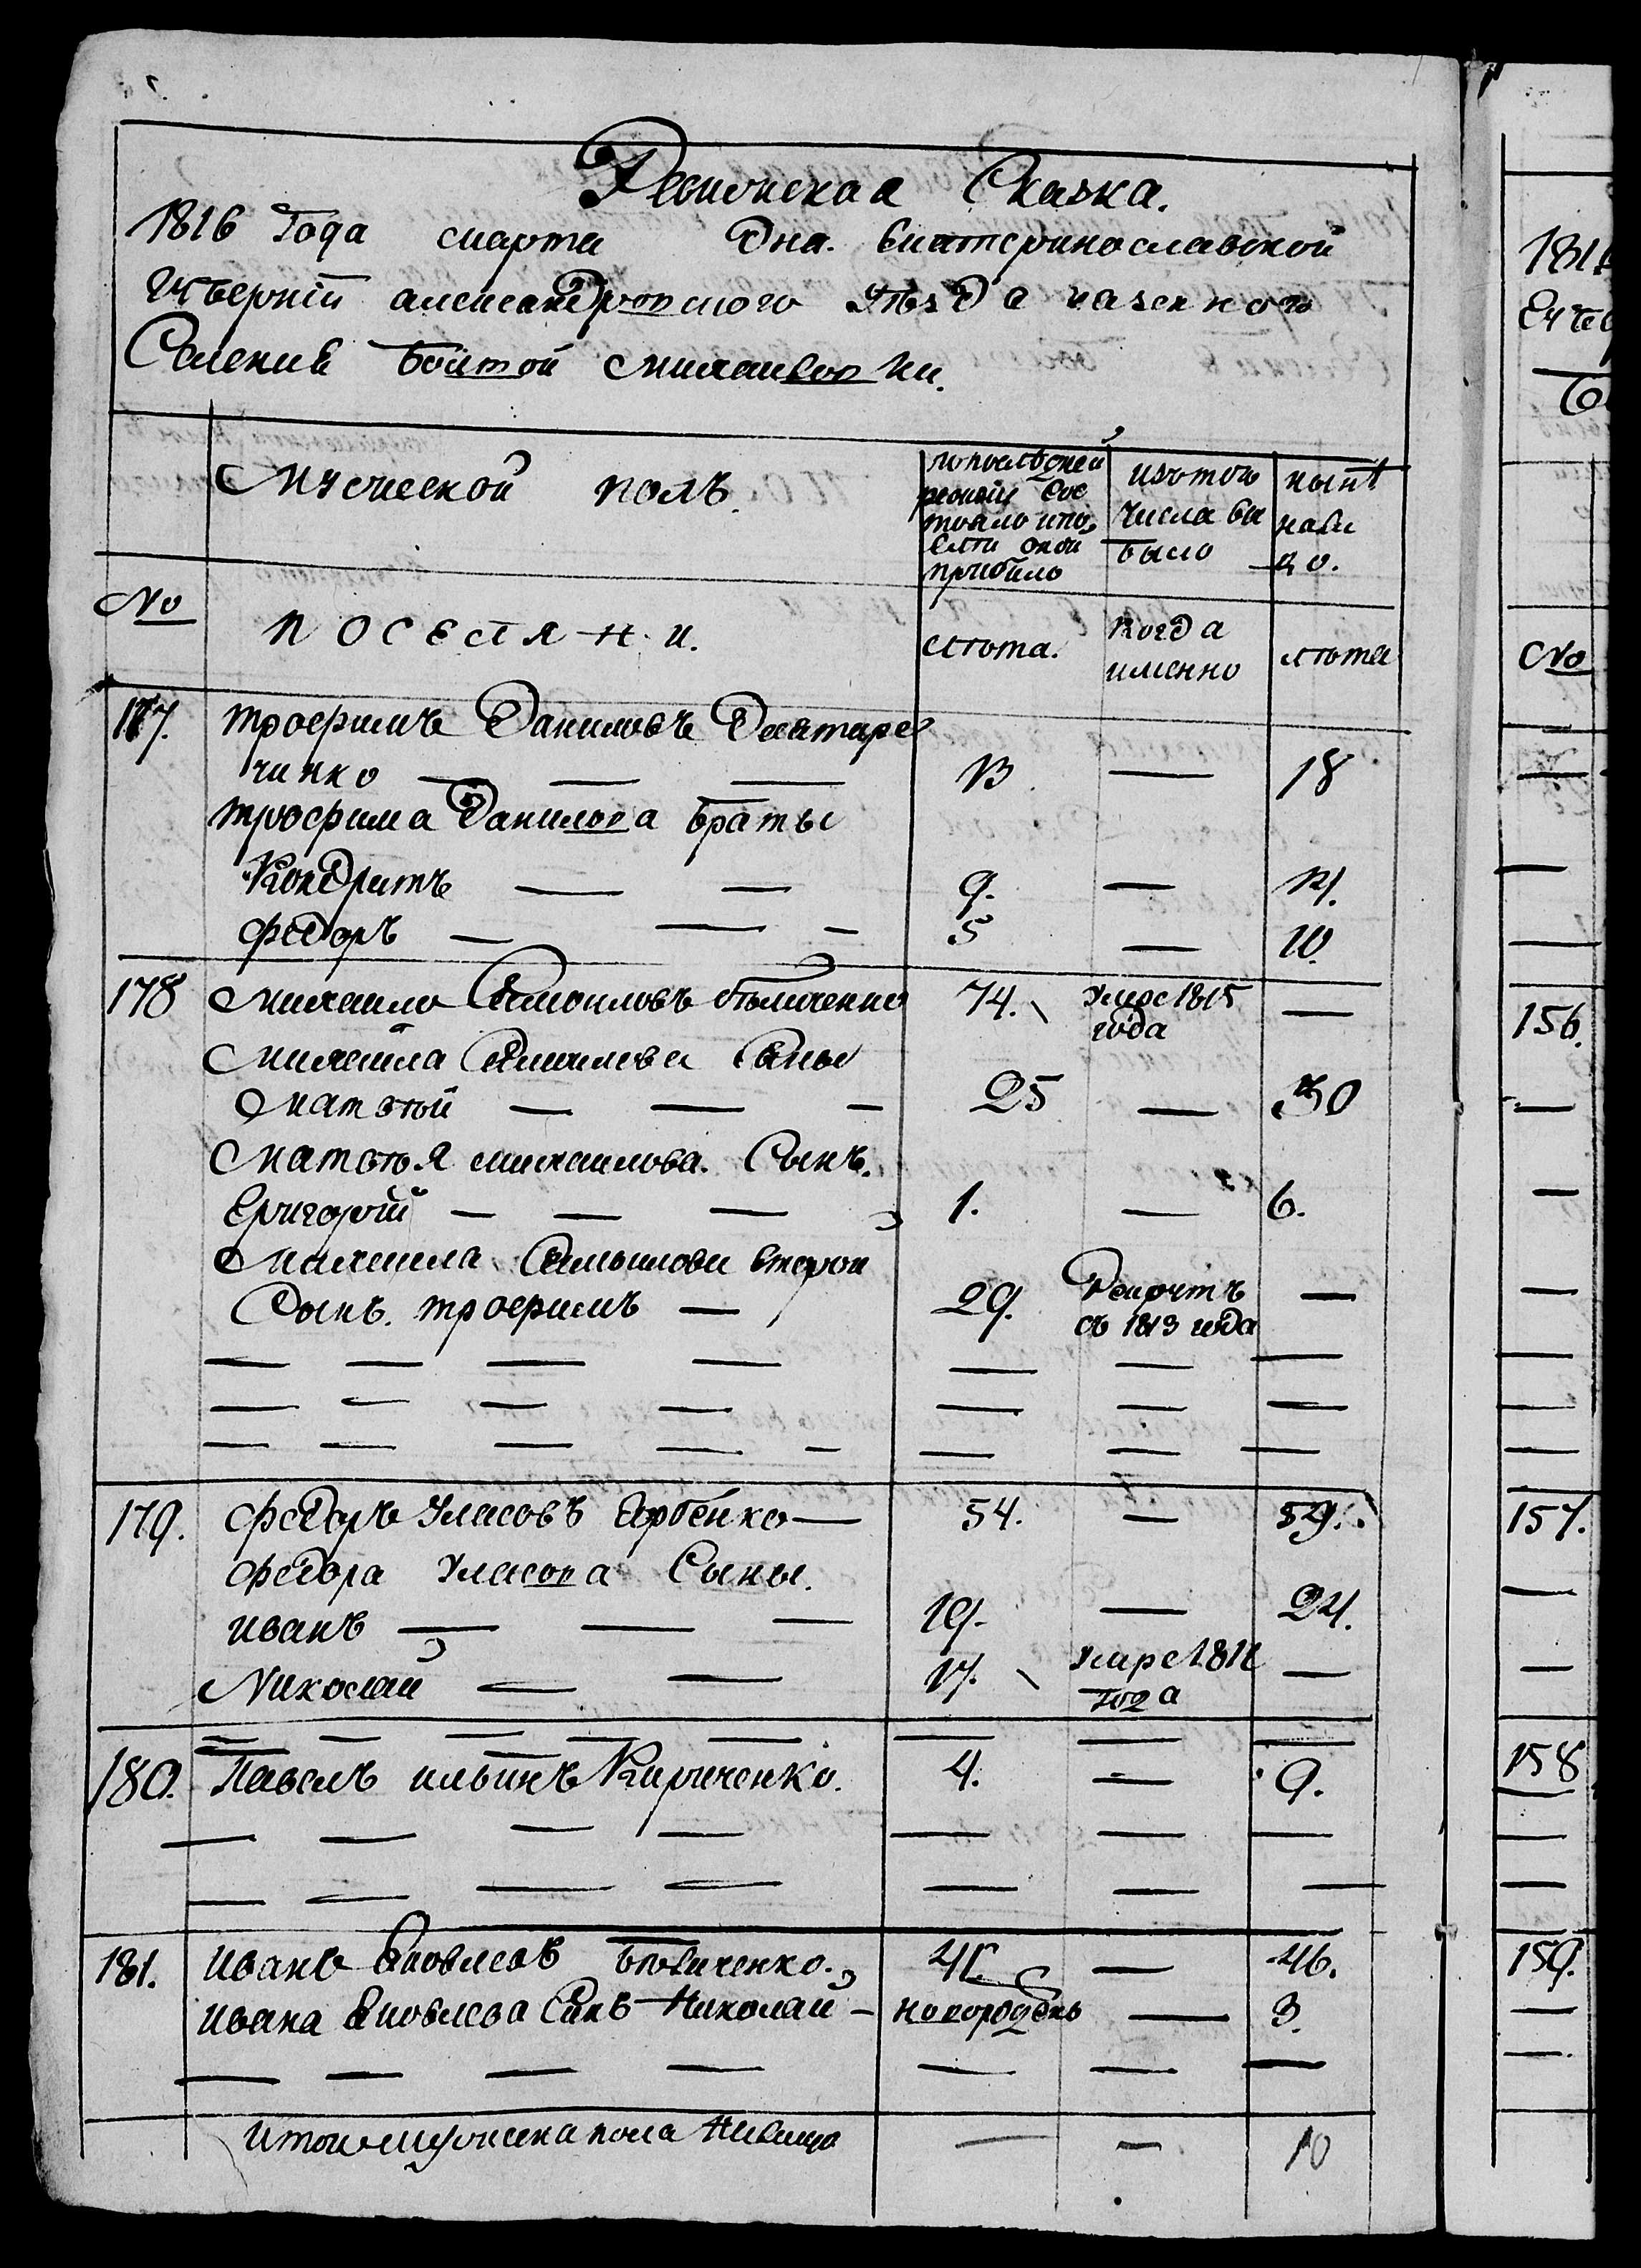 Ревижская Сказка.
1816 Года марта Дня. Екатеринославской
Губернїи александровского Уѣзда казенного
Селения Бѣлтой михайловки.
Мужеской полъ.
попослѣдней ревизїи сос тояло ипо слѣ оной прибыло
изътого числа вы было
нынѣ нали цо.
№
поселяни.
лѣта.
Когда именно
лѣта
177. трофимъ Даниловъ Дехтаре
чинко — — — 13 — 18
трофима Данилова братьи
Кондратъ — — 9. — 14.
федоръ — — — 5 — 10.
178 михаило Самоиловъ 74. умре 1815 года —
михаила Самоилова Сыны
матвѣй — — — 25 — 30
матвѣя михаилова. Сынъ.
Григорїй — — — 1. — 6.
михаила Самоилова второй
Сынъ. трофимъ — 29. Рекрутъ съ 1813 года —
— — — — — — —
— — — — — — —
— — — — — — — —
179. федоръ Уласовъ Горбенко — 54. — 59.
федора Уласова Сыны.
иванъ — — — 19. — 24.
Николай — — 17. умре 1811 года —
— — — — — — — —
180. Павелъ ильинъ Кириченко. 4. — 9.
— — — — — — —
— — — — — — —
181. иванъ Яковлевъ 41. — 46.
ивана Яковлева Сынъ Николай — новорожденъ — 3.
— — — — — — —
итого мужеска пола Налицо — — 10
1816
№
—
—
—
—
156.
—
—
—
—
—
—
157.
—
—
158
—
—
—
159.
—
—